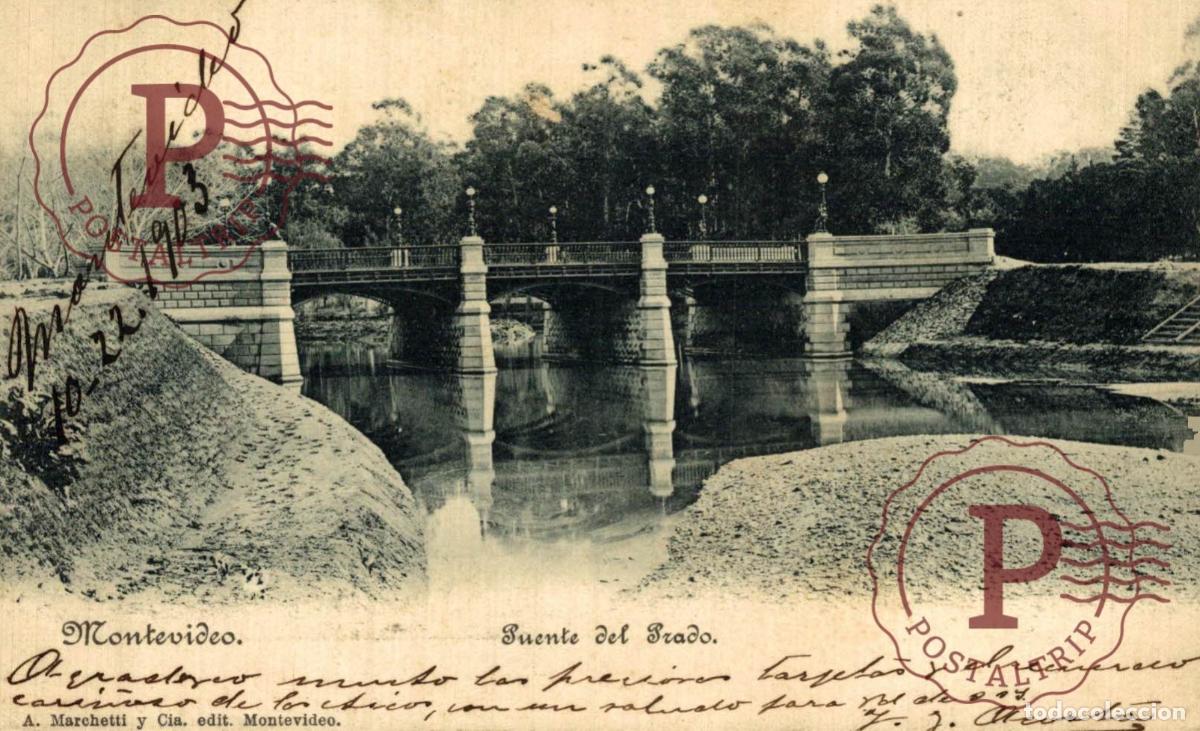 Montevideo
10-22-1903
P
POSTALTRIP
Montevideo.
Puente del Prado.
Agradezco mucho las preciosas tarjetas y el recuerdo
cariñoso de los chicos, con un saludo para Vd de
A. Marchetti y Cia. edit. Montevideo.
P
POSTALTRIP
todocoleccion